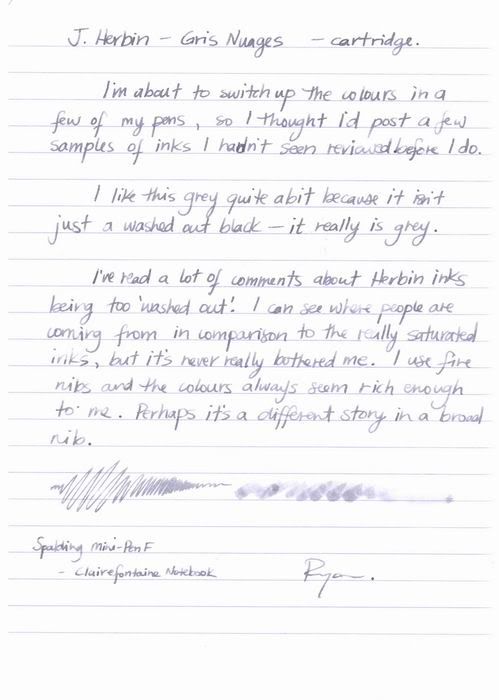 J. Herbin – Gris Nuages – cartridge.
I'm about to switch up the colours in a
few of my pens, so I thought I'd post a few
samples of inks I hadn't seen reviewed before I do.
I like this grey quite a bit because it isn't
just a washed out black – it really is grey.
I've read a lot of comments about Herbin inks
being too 'washed out'. I can see where people are
coming from in comparison to the really saturated
inks, but it's never really bothered me. I use fine
nibs and the colours always seem rich enough
to me. Perhaps it's a different story in a broad
nib.
Spalding mini-Pen F
- Clairefontaine Notebook
Ryan.